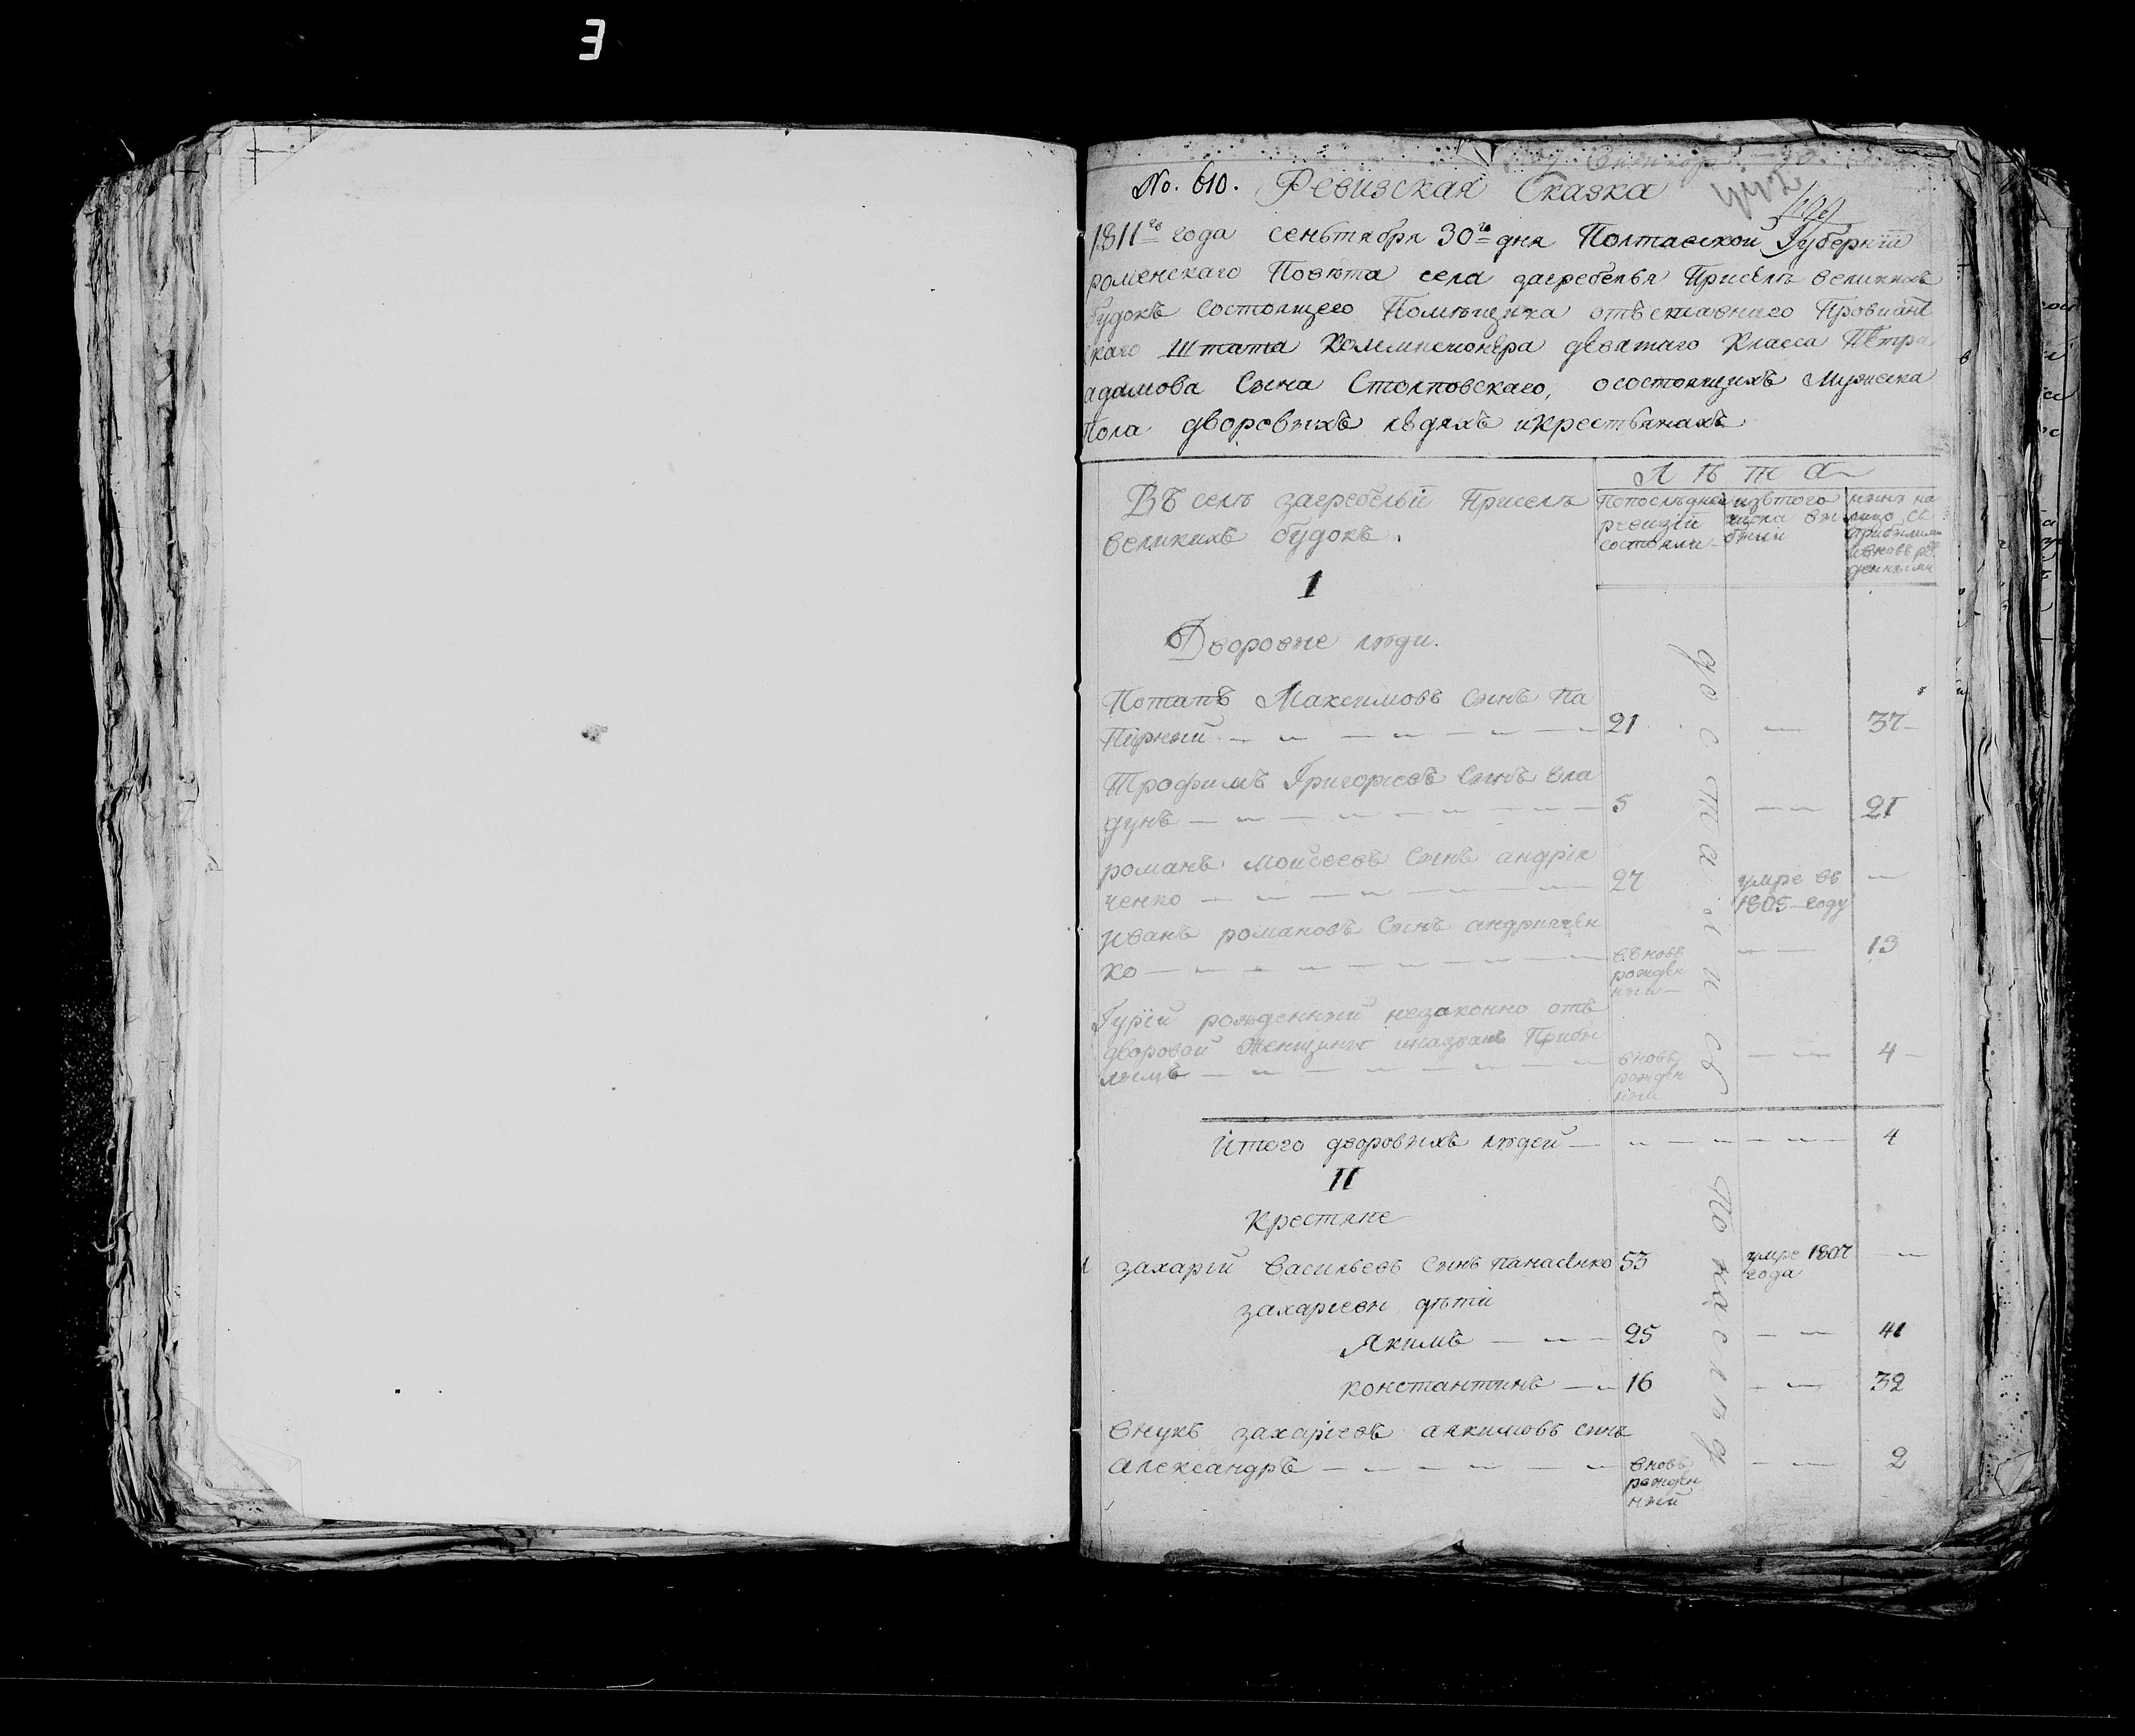 No. 610. Ревизская Сказка
1811го года сеньтября 30го дня Полтавской Губернїи
роменскаго Повѣта села загребелья Приселъ великихъ
будокъ состоящего Помѣщика отъставнаго Провиант
скаго Штата Коммисионера деватаго Класса Петра
адамова Сына Столповскаго, осостоящихъ Мужеска
Пола дворовихъ людяхъ икрестьянахъ
Лѣта
Въ селѣ загребельи Приселъ
великихъ будокъ.
Попослѣдней
ревизїи
состояли
изътого
числа вы
были
нинѣ на
лицо съ
Прибилими
ивновь ро
денними
I
Дворовие люди.
Потапъ Максимовъ Синъ Па
Пирний 21 — 37
Трофимъ Григорїевъ Синъ Вла
дунъ 5 — 21
романъ Моисеевъ Синъ андрїя
ченко 27 умре въ 1805 году —
Иванъ романовъ Синъ андриячен
ко въновь рожден ний — 13
Гурїй рожденний незаконно отъ
дворовой Женщини
вновь рожден ний — 4
Итого дворовихъ людей 4
II
Крестяне
1 захарїй Васильевъ Синъ Панасенко 53 умре 1807 года —
захарїеви дѣти
Якимъ 25 — 41
константинъ 16 — 32
Внукъ захарїевъ аякимовъ синъ
александръ вновь рожден ний — 2